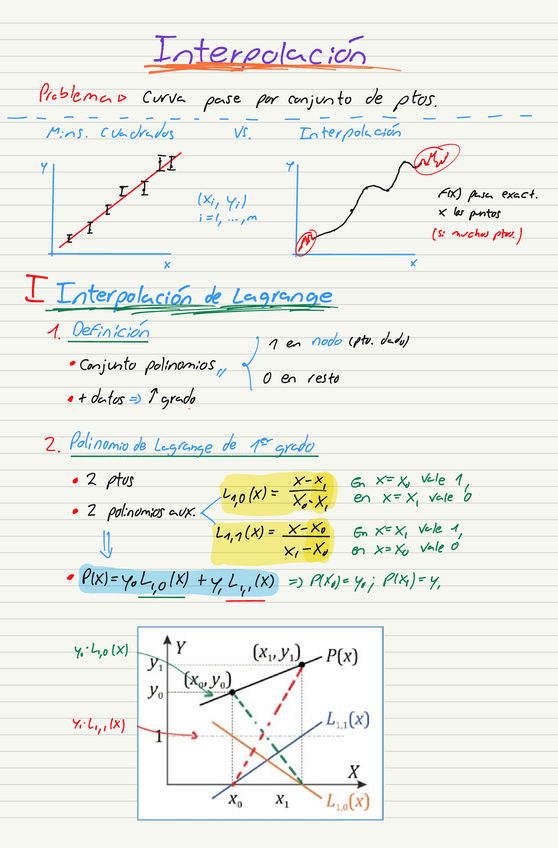 Interpolación
Problema ▷ Curva pase por conjunto de ptos.
Míns. Cuadrados vs. Interpolación
y
(xi, yi)
i=1, ...,m
x
y
F(x) pasa exact.
x los puntos
(si muchos ptos.)
x
I Interpolación de Lagrange
1. Definición
• Conjunto polinomios
1 en nodo (pto. dado)
0 en resto
• + datos ⇒ ↑ grado
2. Polinomio de Lagrange de 1er grado
• 2 ptos
• 2 polinomios aux.
L1,0(x) = (x-x1)/(x0-x1) En x=x0 vale 1,
en x=x1 vale 0
L1,1(x) = (x-x0)/(x1-x0) En x=x1 vale 1,
en x=x0 vale 0
• P(x)=y0 L1,0(x) + y1 L1,1(x) ⇒ P(x0)=y0 ; P(x1)=y1
y0·L1,0(x)
y1·L1,1(x)
Y
(x1,y1) P(x)
y1
(x0,y0)
y0
L1,1(x)
1
X
x0 x1 L1,0(x)